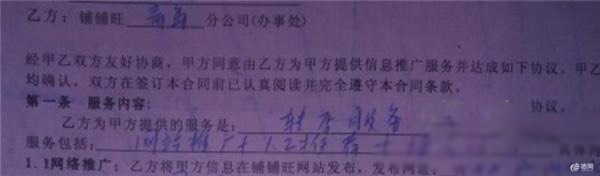 乙方：铺铺旺 青岛 分公司(办事处)
经甲乙双方友好协商，甲方同意由乙方为甲方提供信息推广服务并达成如下协议。甲乙
均确认，双方在签订本合同前已认真阅读并完全遵守本合同条款。
第一条 服务内容： 协议。
乙方为甲方提供的服务是： 转店服务
服务包括： 网站推广+人工推荐+
1.1网络推广：乙方将甲方信息在铺铺旺网站发布，发布网址：